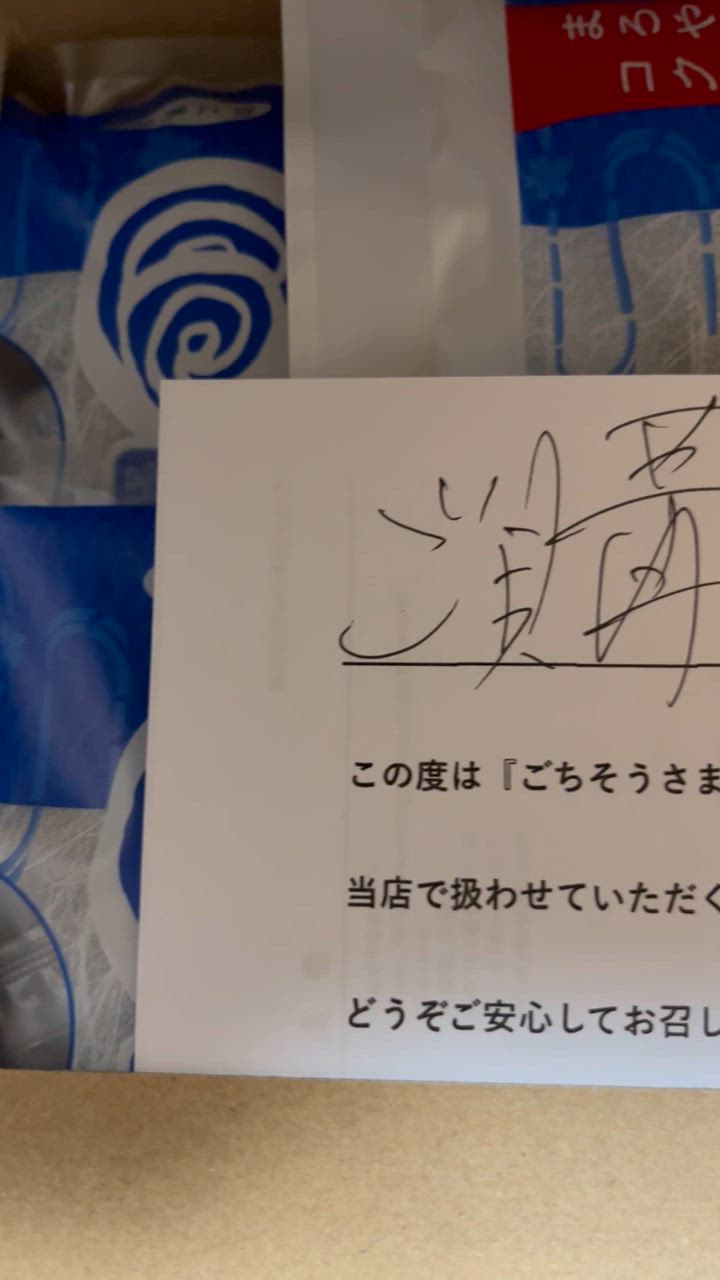 まろや
コク
ご購
この度は『ごちそうさま
当店で扱わせていただく
どうぞご安心してお召し